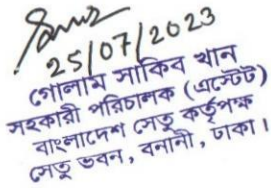 25/07/2023
গোলাম সাকিব খান
সহকারী পরিচালক (এস্টেট)
বাংলাদেশ সেতু কর্তৃপক্ষ
সেতু ভবন, বনানী, ঢাকা।